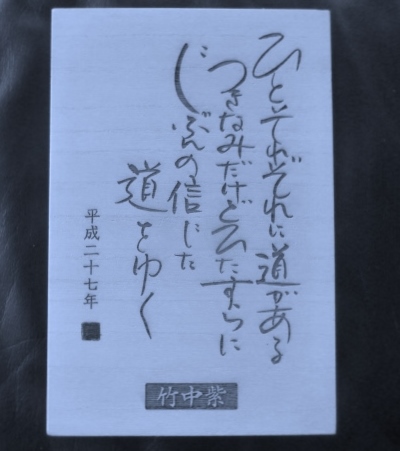 ひとそれぞれに道がある
つきなみだけどひたすらに
じぶんの信じた
道をゆく
平成二十七年
竹中紫